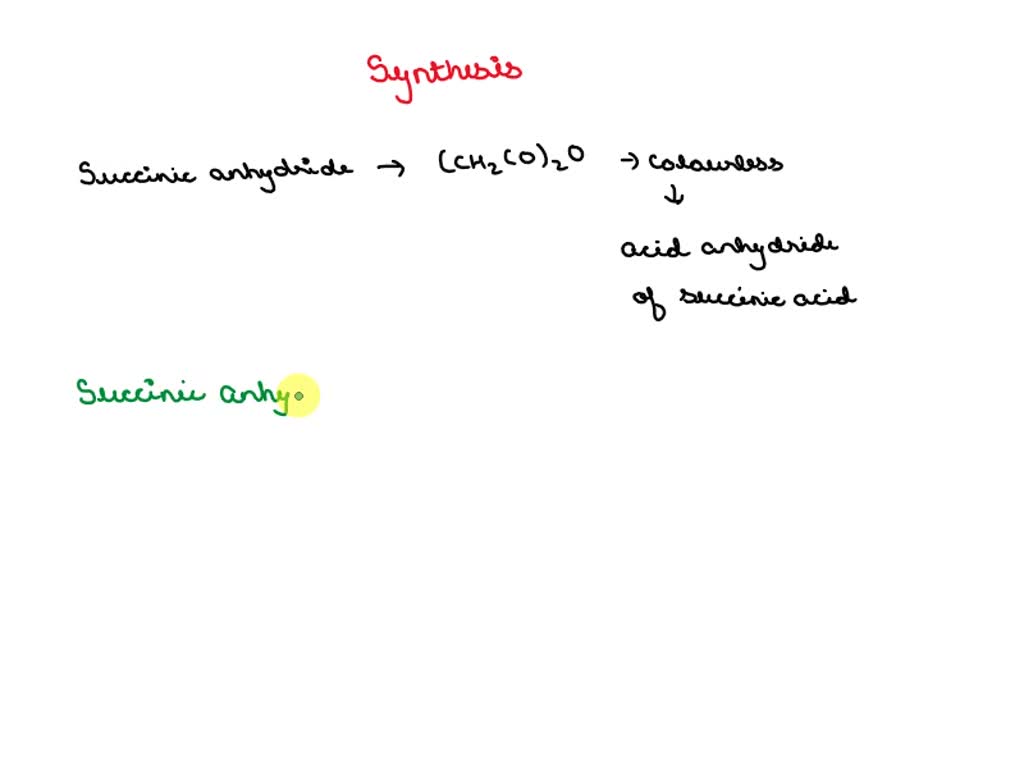 Synthesis
Succinic anhydride → (CH₂CO)₂O → colourless
↓
acid anhydride
of succinic acid
Succinic anhy